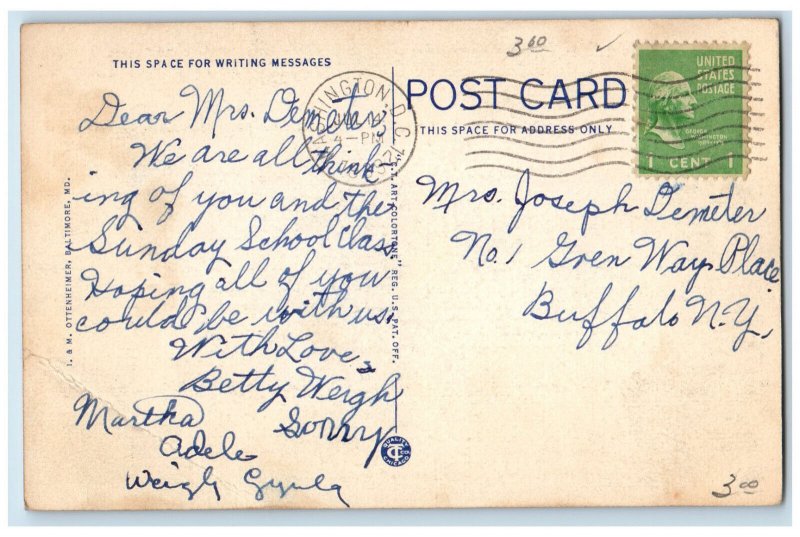 THIS SPACE FOR WRITING MESSAGES
Dear Mrs. Demeter,
We are all think-
ing of you and the
Sunday School Class.
Hoping all of you
could be with us.
With Love,
Betty Weigh
Martha Sonny
Adele
Weigh Gyula
I. & M. OTTENHEIMER, BALTIMORE, MD.
"C.T. ART-COLORTONE" REG. U.S. PAT. OFF.
QUALITY
CT CO
CHICAGO
POST CARD
THIS SPACE FOR ADDRESS ONLY
WASHINGTON, D.C.
4-PM
UNITED
STATES
POSTAGE
GEORGE
WASHINGTON
1 CENT 1
Mrs. Joseph Demeter
No. 1 Gren Way Place
Buffalo N.Y.
3 60
3 00